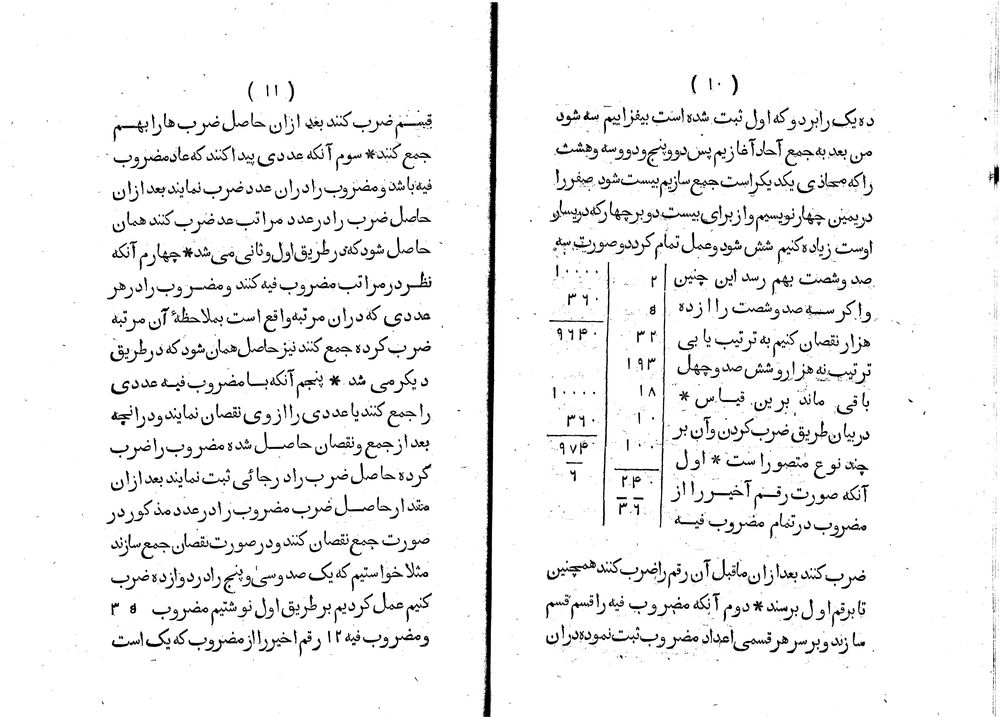 ( ۱۰ )
ده یک را بر دو که اول ثبت شده است بیفزاییم سه شود
من بعد به جمع آحاد آغازیم پس دو و پنج و دو و سه و هشت
را که محاذی یکدیگر است جمع سازیم بیست شود صفر را
در یمین چهار نویسیم و از برای بیست دو بر چهار که در یسار
اوست زیاده کنیم شش شود و عمل تمام گردد و صورت سه
صد و شصت بهم رسد این چنین
و اگر سه صد و شصت را از ده
هزار نقصان کنیم به ترتیب یا بی
ترتیب نه هزار و شش صد و چهل
باقی ماند برین قیاس *
در بیان طریق ضرب کردن و آن بر
چند نوع متصور است * اول
آنکه صورت رقم آخیر را از
مضروب در تمام مضروب فیه
۲
۵
۳۲
۱۹۳
۱۸
۱۰
۱۰۰
۲۴۰
۳۶
۱۰۰۰۰
۳۶۰
۹۶۴۰
۱۰۰۰۰
۳۶۰
۹۷۴
۶
ضرب کنند بعد ازان ماقبل آن رقم را ضرب کنند همچنین
تا برقم اول برسند * دوم آنکه مضروب فیه را قسم قسم
سازند و بر سر هر قسمی اعداد مضروب ثبت نموده دران
( ۱۱ )
قسم ضرب کنند بعد ازان حاصل ضرب ها را بهم
جمع کنند * سوم آنکه عددی پیدا کنند که عاد مضروب
فیه باشد و مضروب را دران عدد ضرب نمایند بعد ازان
حاصل ضرب را در عدد مراتب عد ضرب کنند همان
حاصل شود که در طریق اول و ثانی می شد * چهارم آنکه
نظر در مراتب مضروب فیه کنند و مضروب را در هر
عددی که دران مرتبه واقع است بملاحظهٔ آن مرتبه
ضرب کرده جمع کنند نیز حاصل همان شود که در طریق
دیگر می شد * پنجم آنکه با مضروب فیه عددی
را جمع کنند یا عددی را از وی نقصان نمایند و در انچه
بعد از جمع و نقصان حاصل شده مضروب را ضرب
کرده حاصل ضرب را در جائی ثبت نمایند بعد ازان
مقدار حاصل ضرب مضروب را در عدد مذکور در
صورت جمع نقصان کنند و در صورت نقصان جمع سازند
مثلا خواستیم که یک صد و سی و پنج را در دوازده ضرب
کنیم عمل کردیم بر طریق اول نوشتیم مضروب ۵ ۳
و مضروب فیه ۱۲ رقم اخیر را از مضروب که یک است